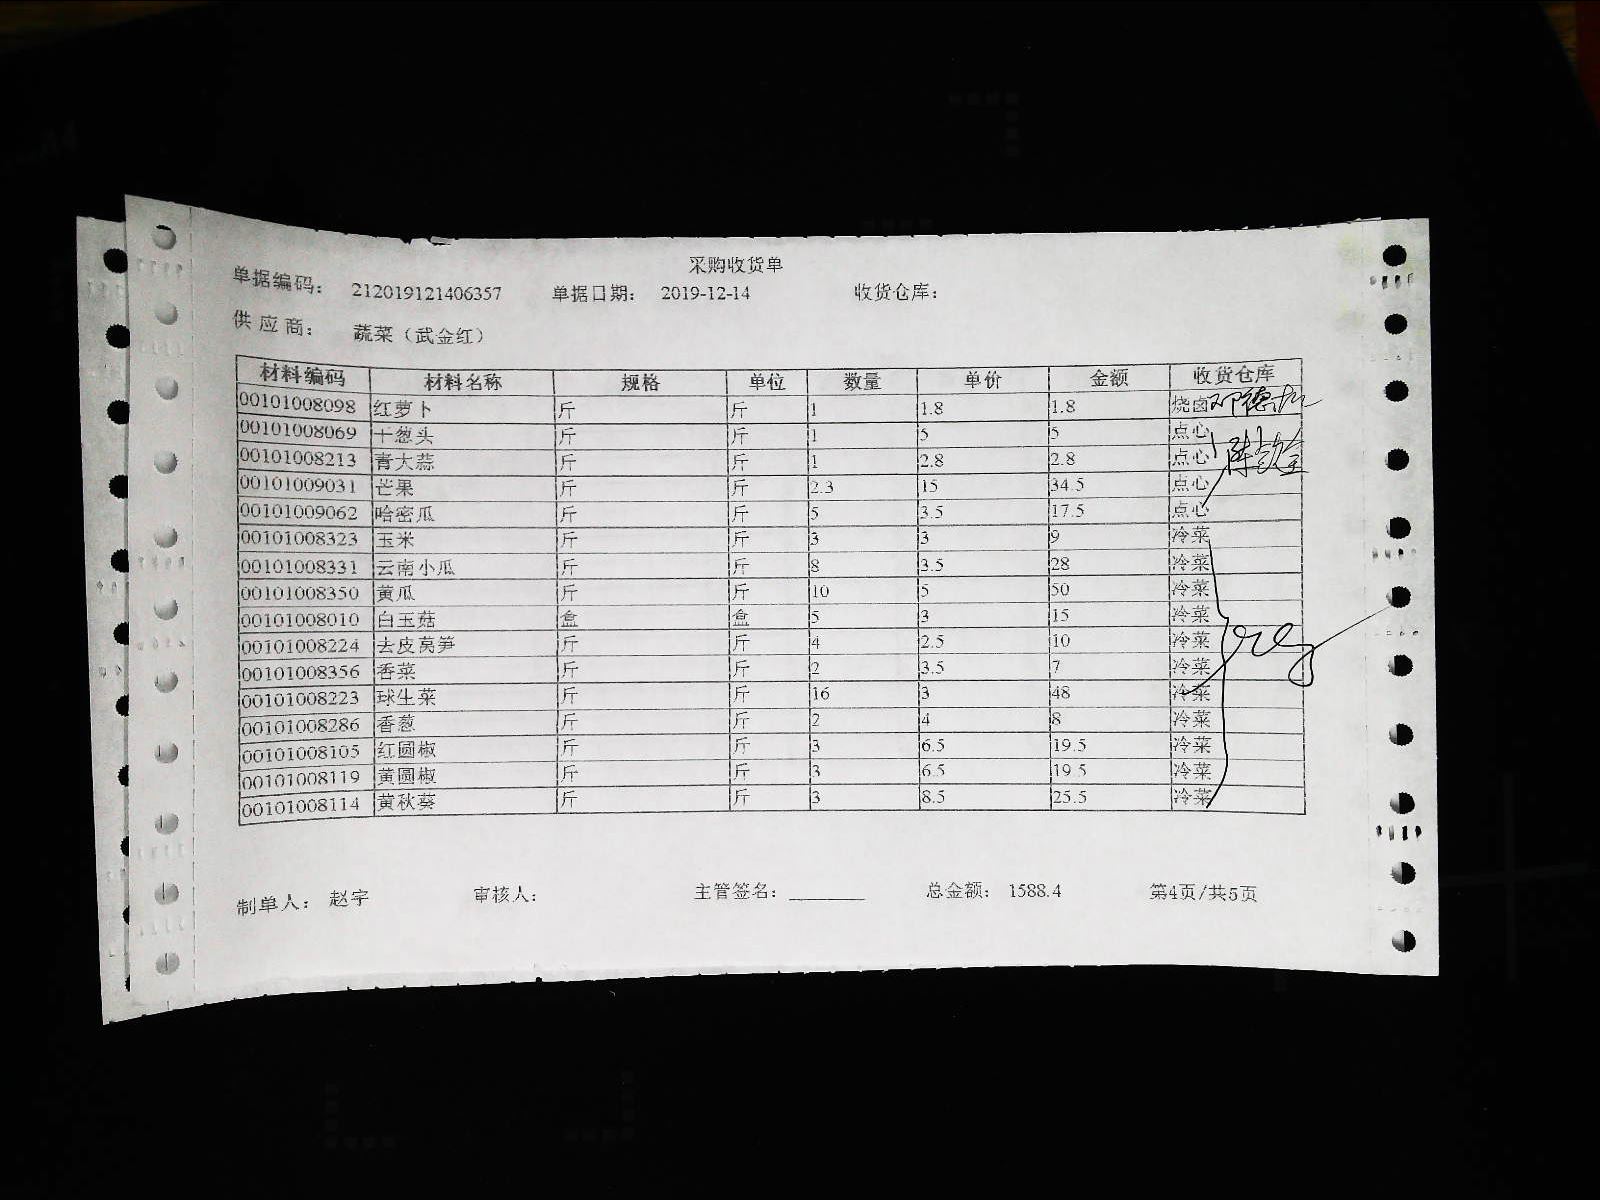 采购收货单
单据编码： 212019121406357 单据日期： 2019-12-14 收货仓库：
供应商： 蔬菜（武金红）
材料编码 材料名称 规格 单位 数量 单价 金额 收货仓库
00101008098 红萝卜 斤 斤 1 1.8 1.8 烧卤
00101008069 干葱头 斤 斤 1 5 5 点心
00101008213 青大蒜 斤 斤 1 2.8 2.8 点心
00101009031 芒果 斤 斤 2.3 15 34.5 点心
00101009062 哈密瓜 斤 斤 5 3.5 17.5 点心
00101008323 玉米 斤 斤 3 3 9 冷菜
00101008331 云南小瓜 斤 斤 8 3.5 28 冷菜
00101008350 黄瓜 斤 斤 10 5 50 冷菜
00101008010 白玉菇 盒 盒 5 3 15 冷菜
00101008224 去皮莴笋 斤 斤 4 2.5 10 冷菜
00101008356 香菜 斤 斤 2 3.5 7 冷菜
00101008223 球生菜 斤 斤 16 3 48 冷菜
00101008286 香葱 斤 斤 2 4 8 冷菜
00101008105 红圆椒 斤 斤 3 6.5 19.5 冷菜
00101008119 黄圆椒 斤 斤 3 6.5 19.5 冷菜
00101008114 黄秋葵 斤 斤 3 8.5 25.5 冷菜
制单人： 赵宇 审核人： 主管签名： 总金额： 1588.4 第4页/共5页